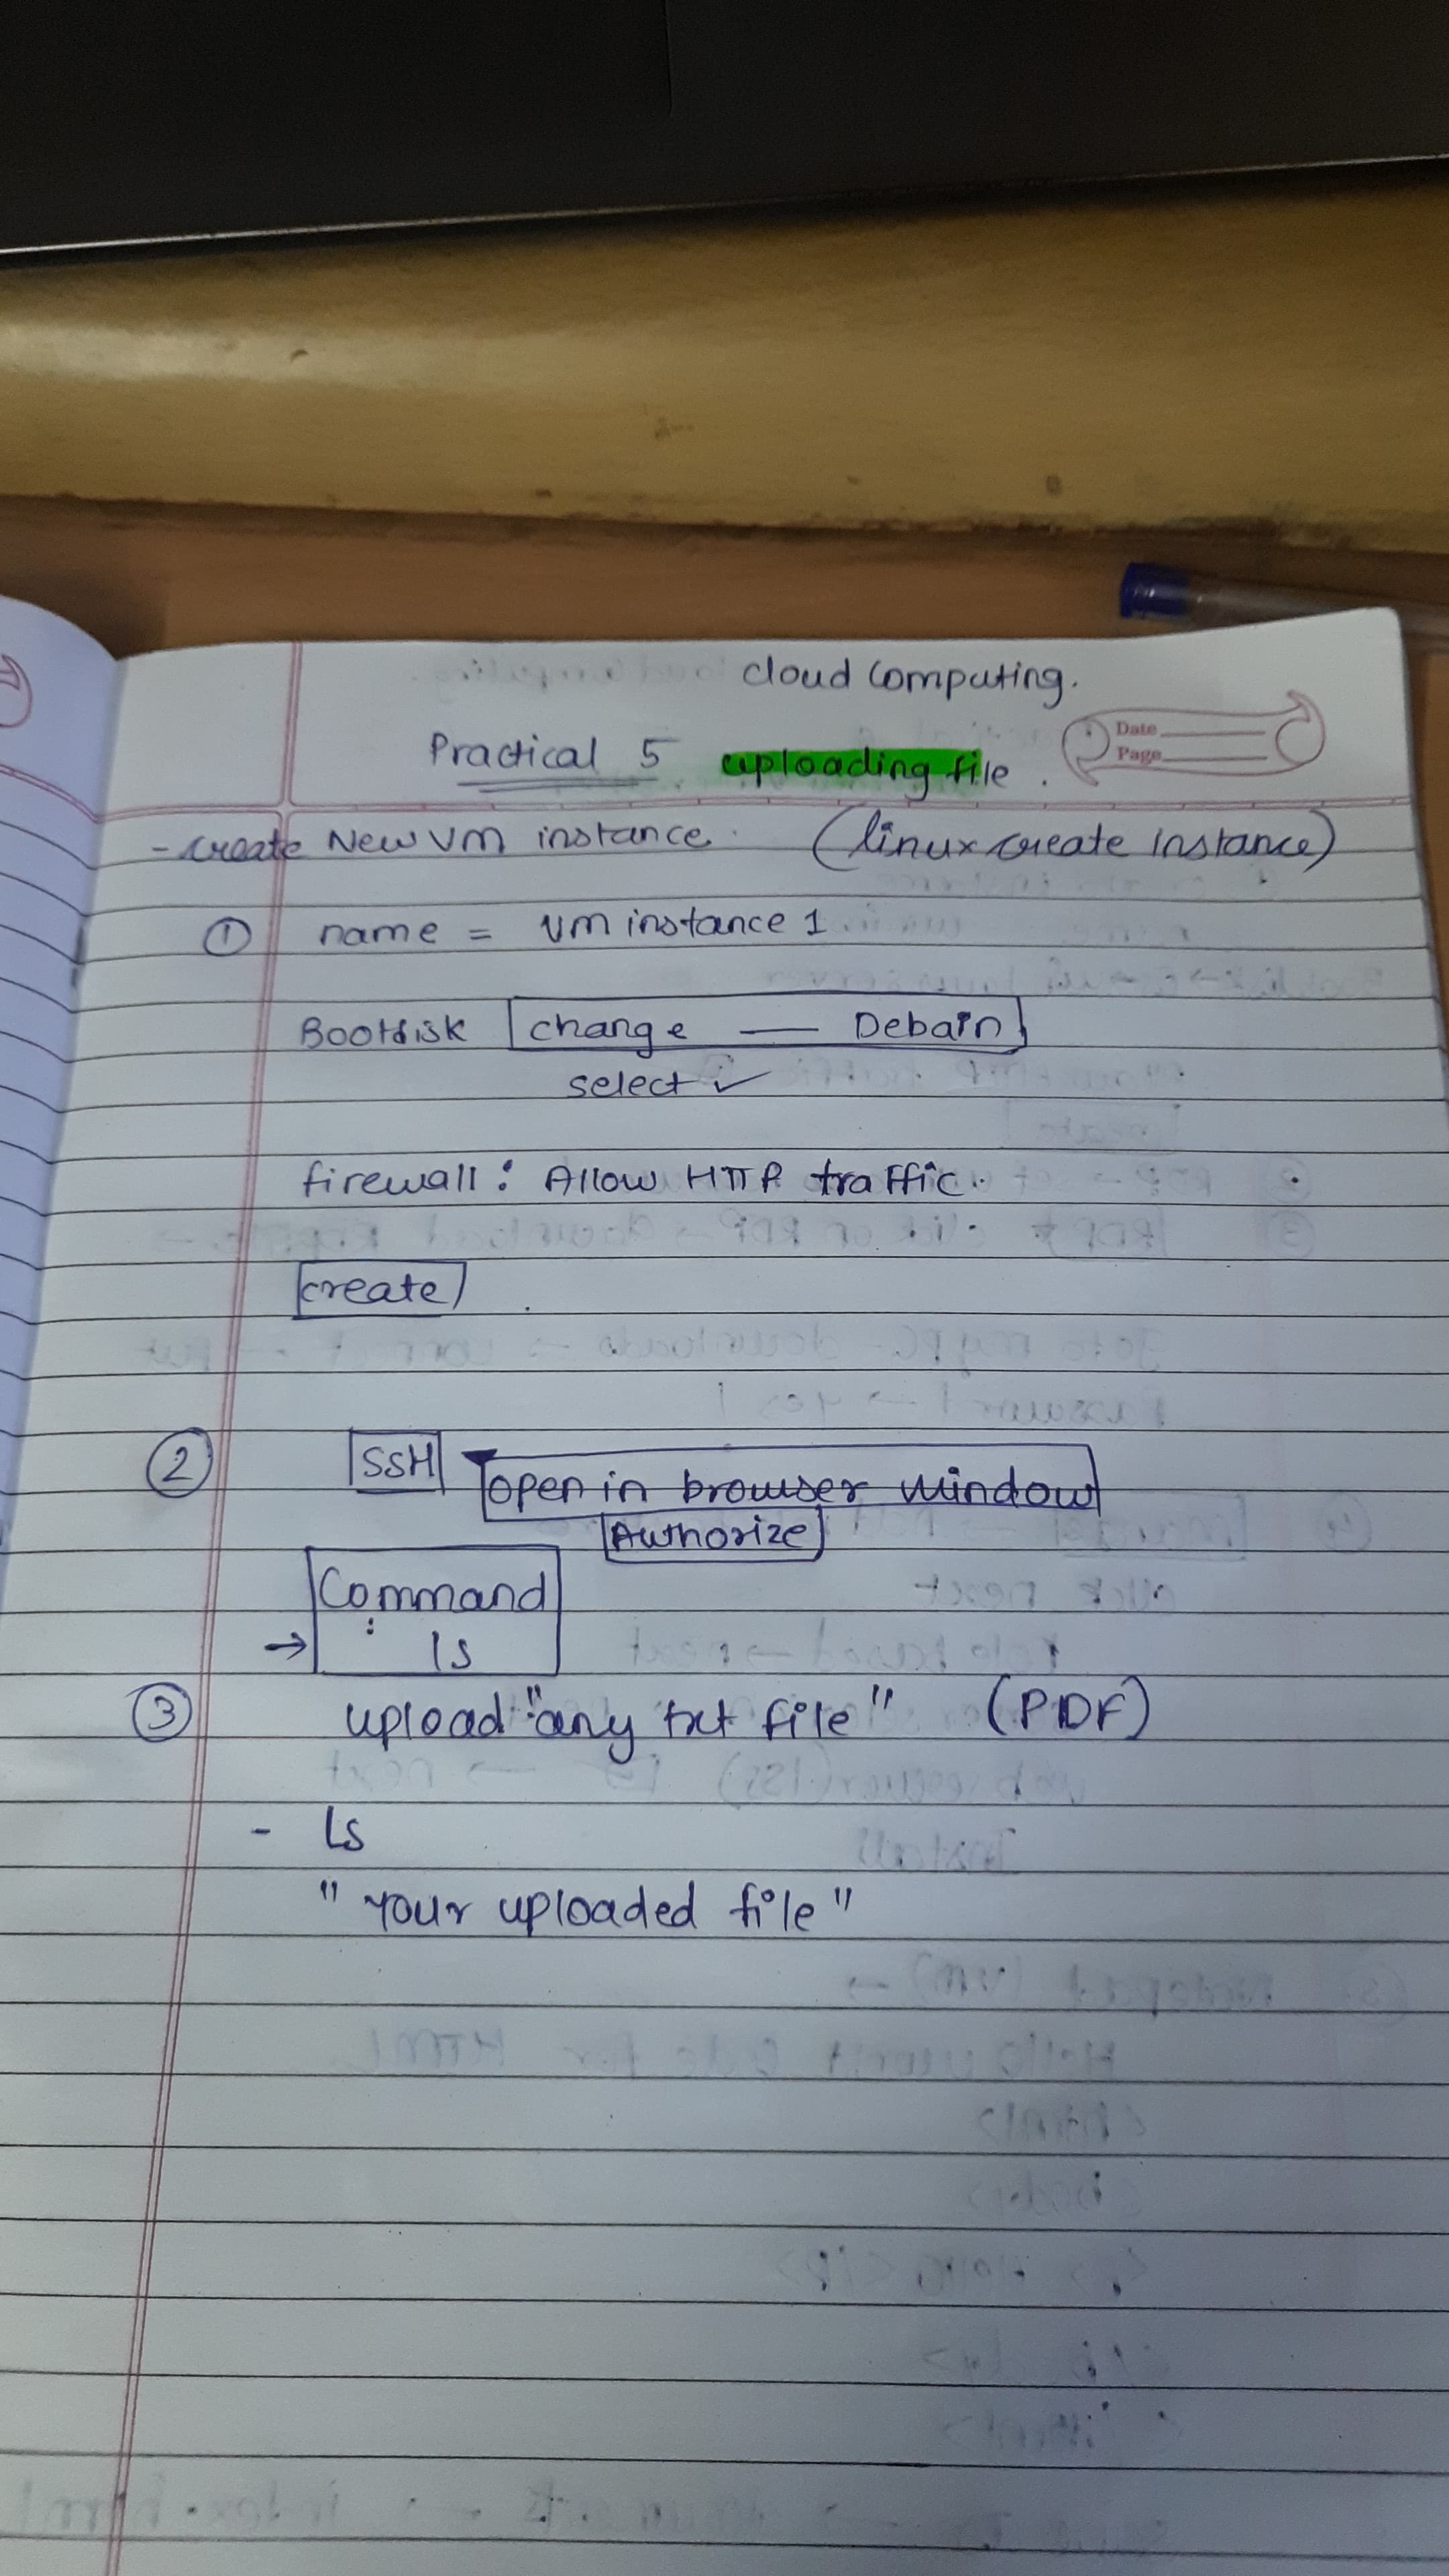 cloud computing.
Practical 5 uploading file.
Date
Page
- create New VM instance. (linux create instance)
① name = vm instance 1
Bootdisk change — Debain
select ✓
firewall : Allow HTTP traffic.
create
② SSH open in browser window
Authorize
Command
: 
→ ls
③ upload "any txt file" (PDF)
- ls
" Your uploaded file "